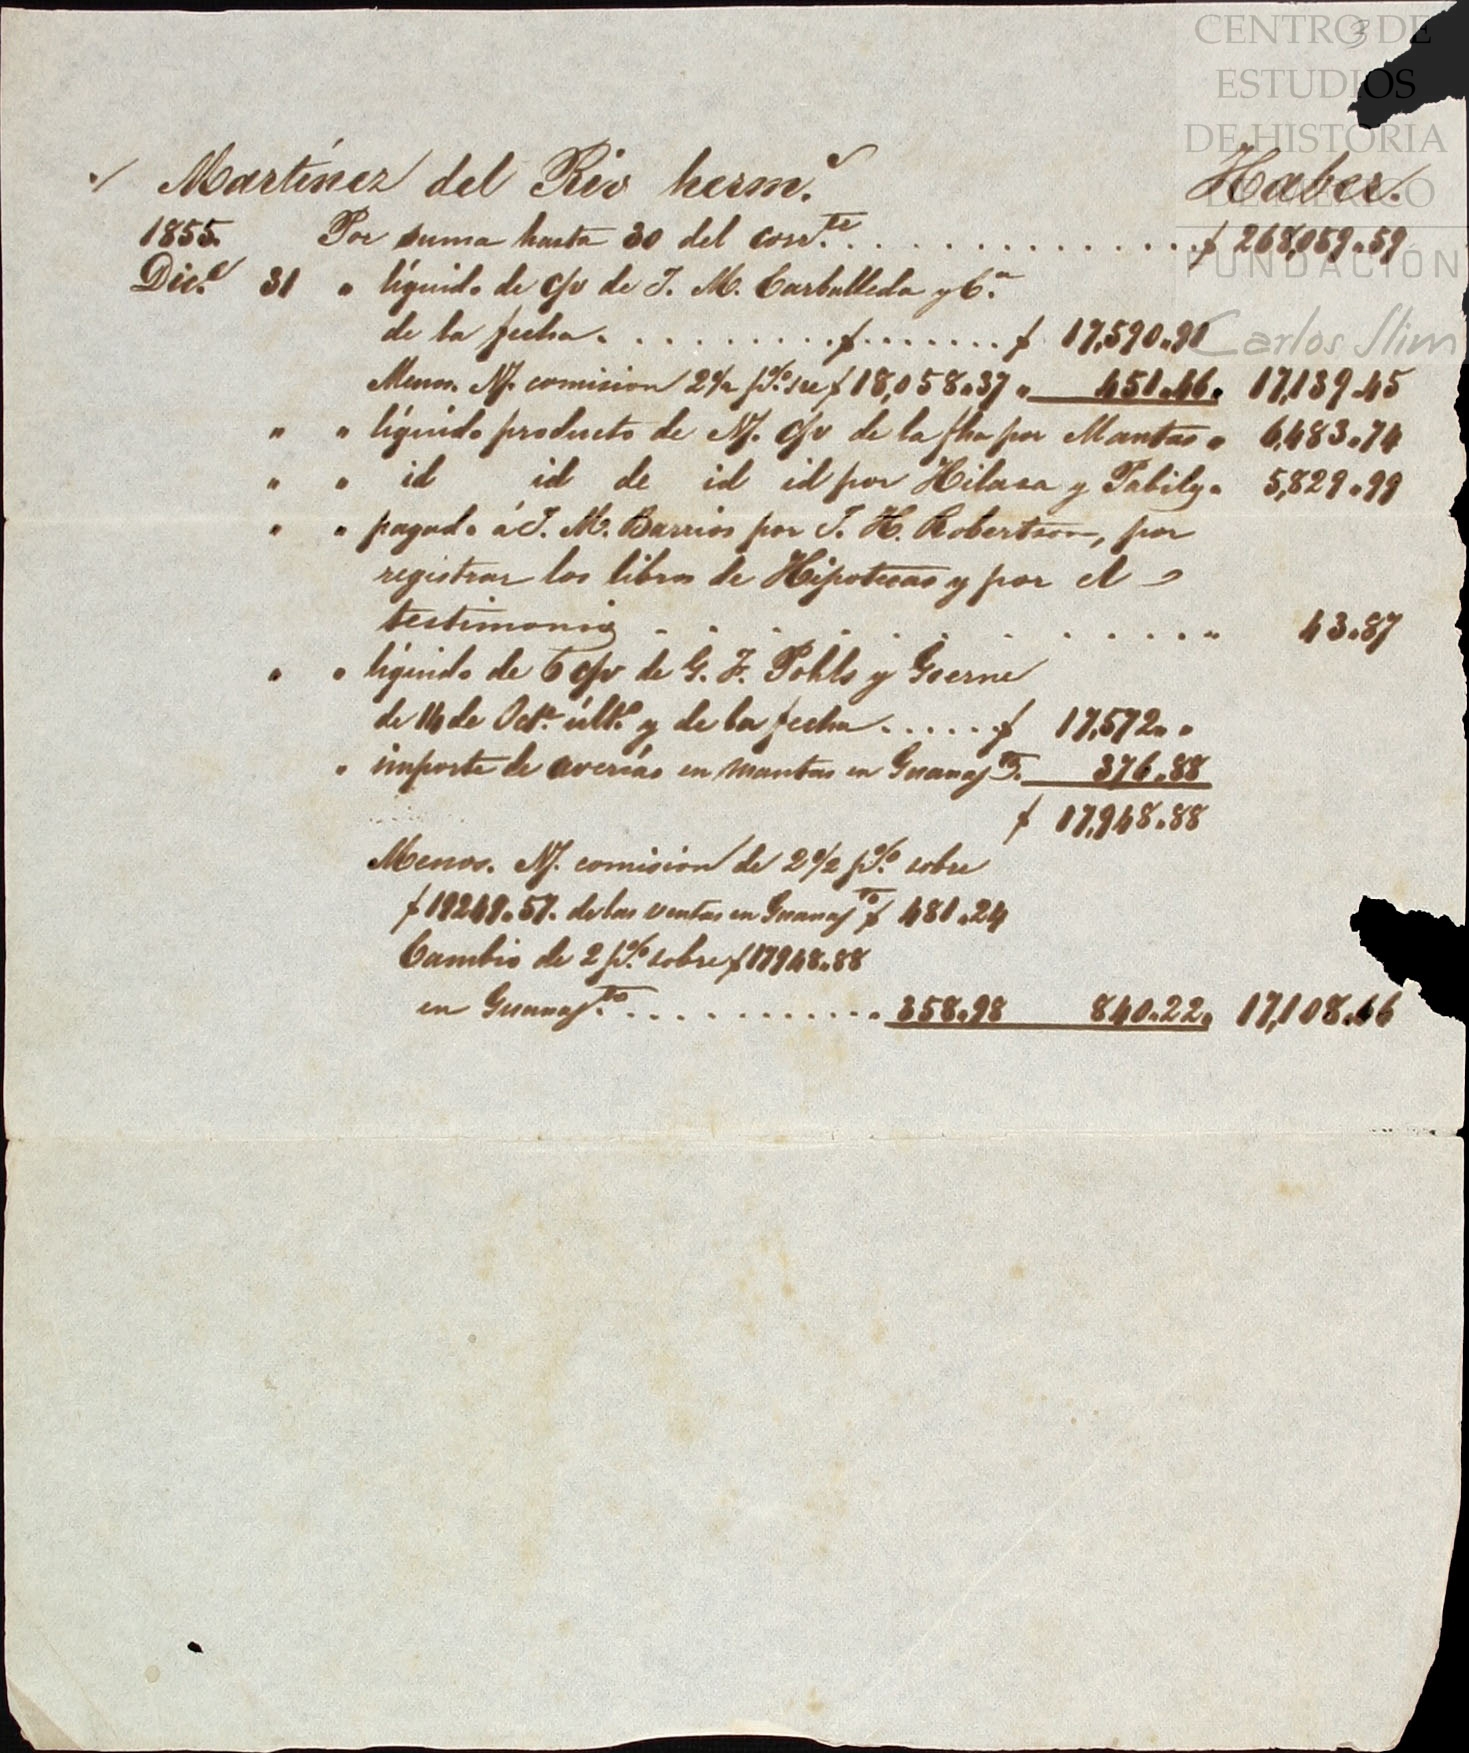 3
CENTRO DE
ESTUDIOS
DE HISTORIA
DE MÉXICO
FUNDACIÓN
Carlos Slim
Martínez del Rio herm.s Haber.
1855. Por suma hasta 30 del corr.te . . . . . . . . . . . . . . . $ 268,059.59
Dic.e 31 " líquido de c/v de J. M. Carballeda y C.a
de la fecha . . . . . . . . . . $ . . . . . . . $ 17,590.91
Menos. N/. comision 2 1/2 p%. sre $ 18,058.37 " 451.46. 17,139.45
" " líquido producto de N/. c/v de la fha por Mantas " 6,483.74
" " id id de id id por Hilaza y Pabilo " 5,829.99
" " pagado á J. M. Barrios por J. H. Robertson, por
registrar los libros de Hipotecas y por el
testimonio . . . . . . . . . . . . " 43.87
" " líquido de 6 c/v de G. F. Pohls y Goerne
de 14 de Oct.e últ.o y de la fecha . . . . . $ 17,572 " "
" importe de averías en mantas en Guanaj.to 376.88
$ 17,948.88
Menos. N/. comision de 2 1/2 p%. sobre
$ 19249.57. de las ventas en Guanaj.to $ 481.24
Cambio de 2 p%. sobre $ 17948.88
en Guanaj.to . . . . . . . . . . . . 358.98 840.22. 17,108.66